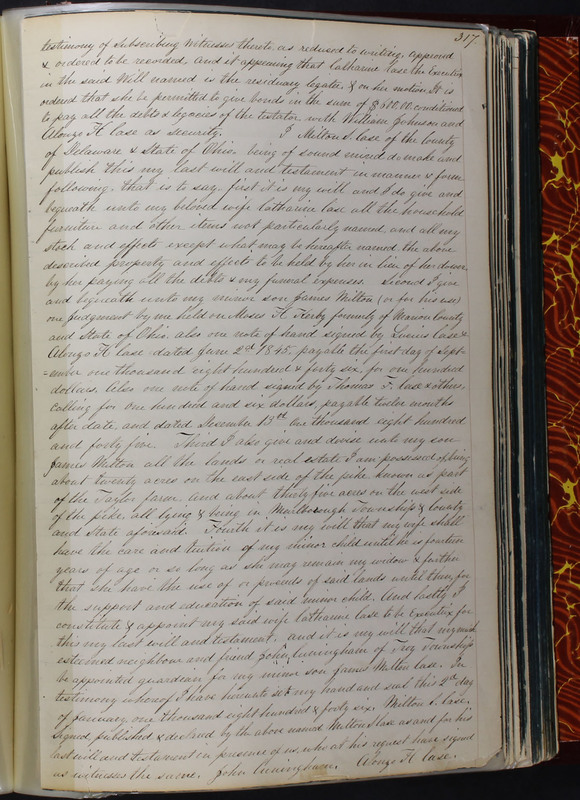 317
testimony of Subscribing Witnesses thereto, as reduced to writing, approved
& ordered to be recorded, and it appearing that Catharine Case the Executrix
in the said Will named is the residuary legatee, & on her motion It is
ordered that she be permitted to give bonds in the sum of $500,00 conditioned
to pay all the debts & legacies of the testator with William Johnson and
Alonzo H Case as Security. I Milton S. Case of the County
of Delaware & State of Ohio, being of sound mind do make and
publish this my last will and testament in manner & form
following, that is to say, first it is my will and I do give and
bequeath unto my beloved wife Catharine Case all the household
furniture and other items not particularly named, and all my
stock and effects except what may be hereafter named the above
described property and effects to be held by her in lieu of her dower
by her paying all the debts & my funeral expenses. Second I give
and bequeath unto my minor son James Milton (or for his use)
one judgment by me held on Moses H. Kerby formerly of Marion County
and State of Ohio. also one note of hand signed by Lucius Case &
Alonzo H Case dated Jany 2d 1845, payable the first day of Sept-
=ember one thousand eight hundred & forty six, for one hundred
dollars. Also one note of hand signed by Thomas F. Case & others,
Calling for one hundred and six dollars, payable twelve months
after date, and dated December 13th one thousand eight hundred
and forty five. Third I also give and devise unto my son
James Milton all the lands or real estate I am possessed of, being
about twenty acres on the east side of the pike known as part
of the Taylor farm and about thirty five acres on the west side
of the pike, all lying & being in Marlborough Township & County
and State aforesaid. Fourth it is my will that my wife shall
have the care and tuition of my minor child until he is fourteen
years of age or so long as she may remain my widow & further
that she have the use of or proceeds of said lands until then, for
the support and education of said minor child. And lastly I
constitute & appoint my said wife Catharine Case to be Executrix for
this my last will and testament. and it is my will that my much
esteemed neighbour and friend John Cuningham of Troy Township
be appointed guardian for my minor son James Milton Case. In
testimony whereof I have hereunto set my hand and seal this 2d day
of January, one thousand eight hundred & forty six. Milton S. Case,
Signed, published & declared by the above named Milton S Case as and for his
last will and testament in presence of us, who at his request have signed
as witnesses the same. John Cuningham. Alonzo H Case.